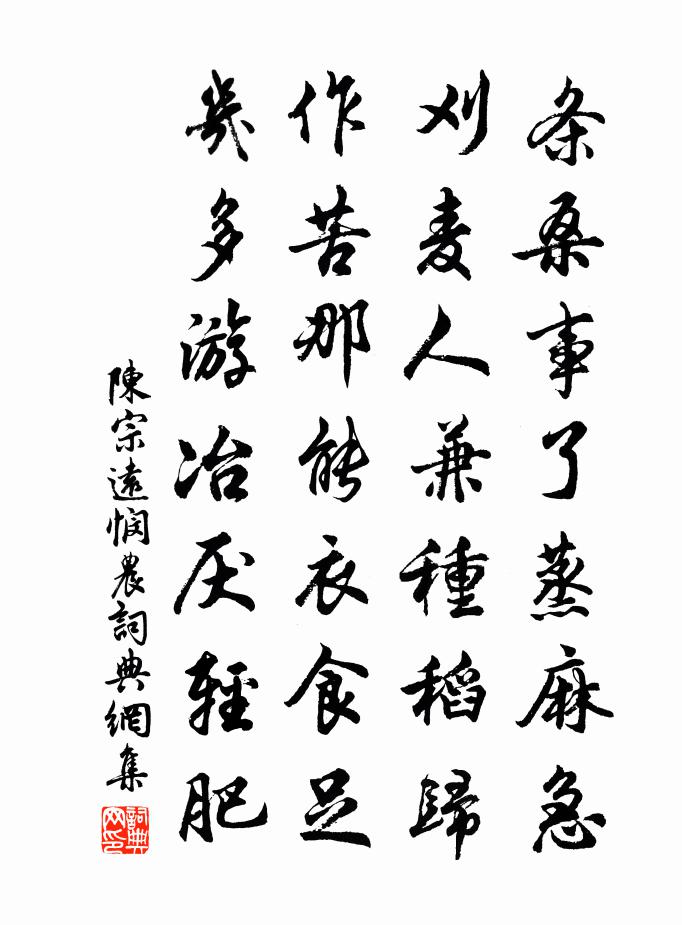 条桑事了蒸麻急
刈麦人兼種稻歸
作苦那能衣食足
幾多游冶厌輕肥
陳宗遠憫農詞典網集
詞典网印